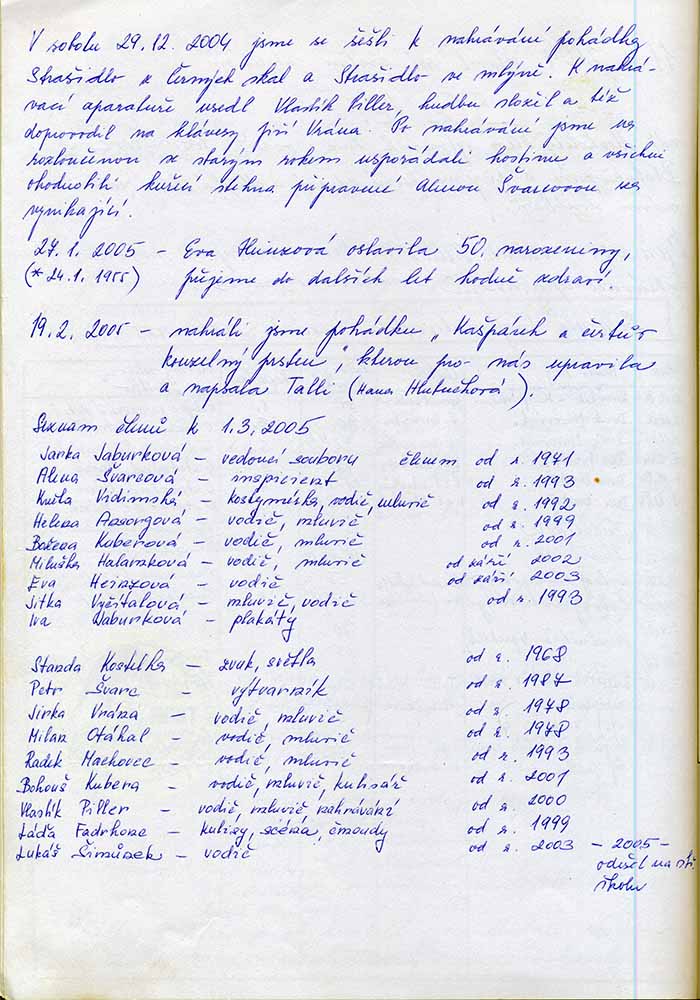 V sobotu 29.12.2004 jsme se sešli k nahrávání pohádky
Strašidlo z Černých skal a Strašidlo ve mlýně. K nahrá-
vací aparatuře usedl Vlastík Piller, hudbu složil a též
doprovodil na klávesy Jiří Vrána. Po nahrávání jsme na
rozloučenou se starým rokem uspořádali hostinu a všichni
ohodnotili kuřecí stehna připravené Alenou Švarcovou za
vynikající.
27.1.2005 – Eva Heinzová oslavila 50. narozeniny,
(* 24.1.1955) přejeme do dalších let hodně zdraví.
19.2.2005 – nahráli jsme pohádku „Kašpárek a čertův
kouzelný prsten", kterou pro nás upravila
a napsala Talli (Hana Hlubuchová).
Seznam členů k 1.3.2005
Jarka Jaburková – vedoucí souboru členem od r. 1971
Alena Švarcová – inspicient od r. 1993
Květa Vidimská – kostymérka, vodič, mluvič od r. 1992
Helena – vodič, mluvič od r. 1999
Božena Kuberová – vodič, mluvič od r. 2001
Miluška Halamková – vodič, mluvič od září 2002
Eva Heinzová – vodič od září 2003
Jitka Vyčítalová – mluvič, vodič od r. 1993
Iva Jaburková – plakáty
Standa Kostelka – zvuk, světla od r. 1968
Petr Švarc – výtvarník od r. 1987
Jirka Vrána – vodič, mluvič od r. 1978
Milan Otáhal – vodič, mluvič od r. 1978
Radek Machovec – vodič, mluvič od r. 1993
Bohouš Kubera – vodič, mluvič, kulisář od r. 2001
Vlastík Piller – vodič, mluvič, nahrávání od r. 2000
Láďa Fadrhonc – kulisy, scéna, čmoudy od r. 1999
Lukáš Šimůnek – vodič od r. 2003 – 2005 –
odešel na stř.
školu